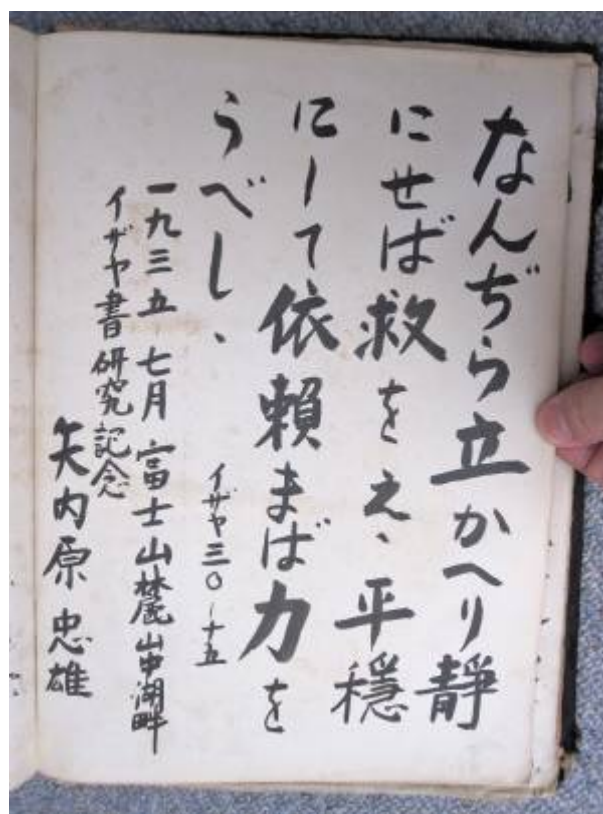 なんぢら立かへり靜
にせば救をえ、平穩
にして依頼まば力を
うべし、
イザヤ三〇ノ十五
一九三五、七月 富士山麓山中湖畔
イザヤ書研究記念
矢内原忠雄